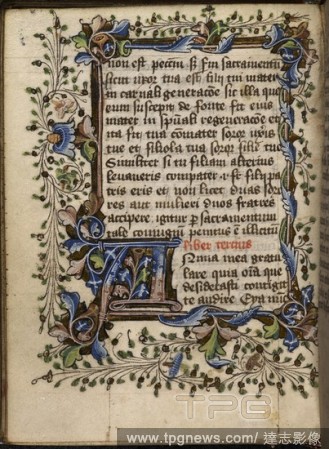 non est peccm̄ s; Fm sacramentū
sicut uxor tua est filij tui mater
in carnali generacōe sic illa que
eum suscepit de fonte fit eius
mater in spūali regeneracōe et
ita fit tua cōmater soror uxoris
tue et filiola tua soror filij tui
Similiter si tu filiam alterius
levaveris compater est
eris et non licet duas soro
res aut mulieri duos fratres
accipere igitur p sacramentum
tale coniugiū penitus ē illicitū
liber tercius
Anima mea
lare quia oīa que
desiderasti
te audire
TPG
www.tpgnews.com/ 達志影像